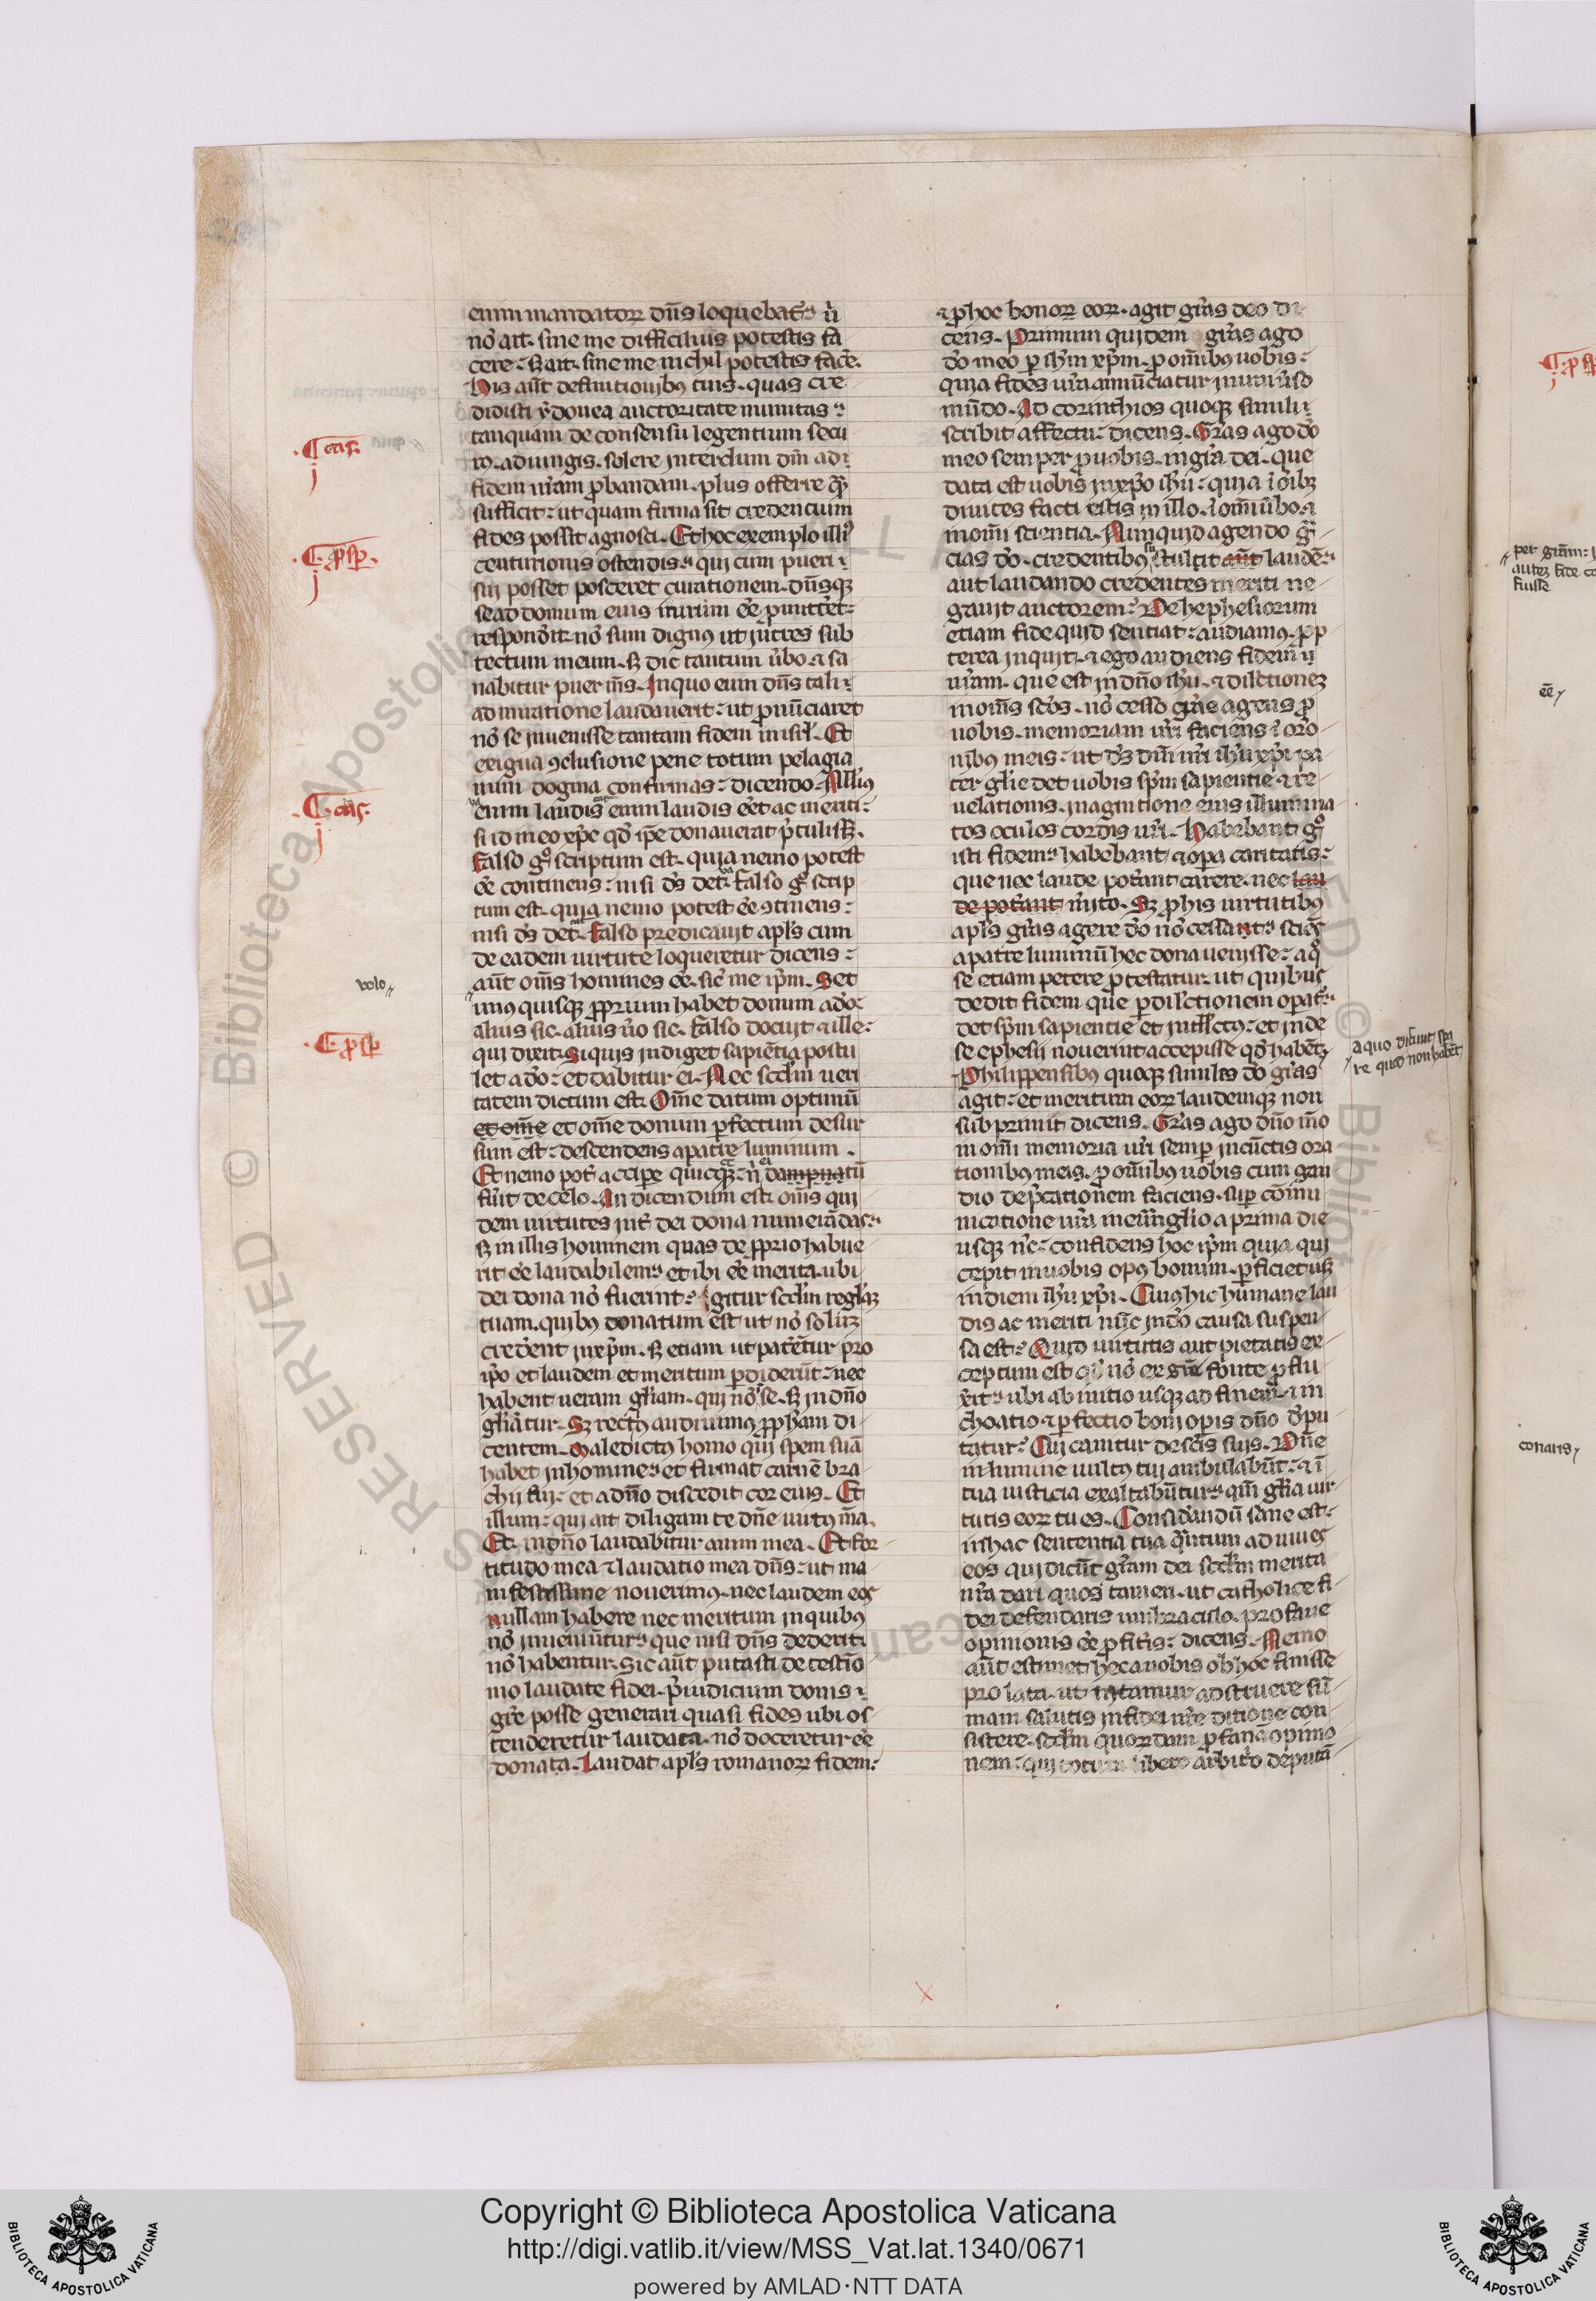 enim mandatoꝝ dn̄s loquebat᷑ ⁊ ñ
nō ait. sine me difficilius potestis fa
cere. Ꞩ ait. sine me nichil potestis face̅.
His aūt definitionibꝰ tuis. quas cre
didisti ydonea auctoritate munitas
tanquam de consensu legentium secu
ro. adiungis. solere interdum dm̄ ad
fidem nr̄am ꝓbandam. plus offerre qͣ̄
sufficit: ut quam firma sit credentium
fides possit agnosci. Et hoc exemplo illiꝰ
centurionis ostendis. qui cum pueri
sui posset poscere curationem. dn̄sqꝫ
se ad domum eius iturum ee̅ ꝓmitteret:
respondit. nō sum dignꝰ ut intres sub
tectum meum. ꞩ dic tantum ūbo ⁊ sa
nabitur puer mꝰs. In quo eum dn̄s tali
admiratione laudauerit: ut ꝓnūciaret
nō se inuenisse tantam fidem in isrl̄. Et
exigua ꝯclusione pene totum pelagia
num dogma confirmas: dicendo. Alliꝰ
enim laudis eum laudis ee̅t ac meriti:
si id in eo xp̄c qd̄ ip̄e donauerat ptulissꝫ.
Falso gͦ scriptum est. quia nemo potest
ee̅ continens: nisi ds̄ det. Falso gͦ scrip
tum est. quia nemo potest ee̅ ꝯtinens:
nisi ds̄ det. Falso predicauit apl̄s cum
de eadem uirtute loqueretur dicens:
volo
aūt om̄s homines ee̅. sic̄ me ip̄m. Set
unusquisqꝫ ꝓprium habet donum a dō:
alius sic. alius ūo sic. Falso docuit ⁊ ille:
qui dixit. Siquis indiget sapiētia postu
let a dō: et dabitur ei. Nec scd̄m ueri
tatem dictum est. Om̄e datum optimū
et om̄e et om̄e donum ꝑfectum desur
sum est: descendens a patre luminum.
Et nemo pot̄ accipe quicqͣꝫ: n̄ dampnatū
fuit de celo. An dicendum est. om̄s qui
dem uirtutes int̄ dei dona numerādas:
ꞩ in illis hominem quas de ꝓprio habue
rit ee̅ laudabilem. et ibi ee̅ merita. ubi
dei dona nō fuerint: Igitur scd̄m regl̄aꝫ
tuam. quibꝰ donatum est ut nō solūꝫ
crederent in xp̄m. ꞩ etiam ut paterētur pro
ip̄o et laudem et meritum ꝑdiderūt: nec
habent ueram gl̄iam. qui nō i se. ꞩ in dn̄o
gl̄iātur. Sꝫ rectiꝰ audiuimus ꝓpham di
centem. Maledictꝰ homo qui spem suā
habet in homine. et firmat carnē bra
chij sui: et a dn̄o discedit cor eius. Et
illum: qui ait. diligam te dn̄e uirtꝰ m̄a.
Et. in dn̄o laudabitur anima mea. Et for
titudo mea ⁊ laudatio mea dn̄s: ut ma
nifestissime nouerimꝰ. nec laudem eos
nullam habere nec meritum in quibꝰ
nō inueniūtur. que nisi dn̄s dederit.
nō habentur. Sic aūt putasti de testīo
nio laudate fidei. p̄iudicium donis
gr̄e posse generari quasi fides ubi os
tenderetur laudata. nō doceretur ee̅
donata. Laudat apl̄s romanoꝝ fidem:
⁊ ꝓ hoc bonoꝝ eoꝝ. agit gr̄as deo di
cens. Primum quidem gr̄as ago
dō meo ꝑ ih̄m xp̄m. ꝓ om̄ibꝰ uobis:
quia fides ur̄a annūciatur in uniūso
mūdo. Ad corinthios quoqꝫ simili
scribit affectu: dicens. Gr̄as ago dō
meo semper ꝓ uobis. in gr̄a dei. que
data est uobis in xp̄o ih̄u: quia ī oībꝫ
diuites facti estis in illo. ī om̄i ūbo ⁊
in om̄i scientia. Nunquid agendo gͣ
cias dō. credentibꝰ tulit aūt laudē.
aut laudando credentes meriti ne
gauit auctorem: De hephesiorum
etiam fide quid sentiat: audiamꝰ. ꝓp
terea inquit. ⁊ ego audiens fidem
ur̄am. que est in dn̄o ih̄u. ⁊ dilectioneꝫ
in om̄s sc̄os. nō cesso gr̄as agens ꝓ
uobis. memoriam ur̄i faciens ī oro
nibꝰ meis: ut ds̄ dn̄i nr̄i ih̄u xp̄i pa
ter gl̄ie det uobis sp̄m sapientie ⁊ re
uelationis. in agnitione eius illumina
tos oculos cordis ur̄i. Habebant gͦ
isti fidem. habebant ⁊ opa caritatis:
que nec laude pot̄ant carere. nec lau
de pot̄ant m̄ito. Sꝫ ꝓ his uirtutibꝰ
apl̄s gr̄as agere dō nō cessant. sciēs
a patre luminū hec dona uenisse: a qͦ
se etiam petere ꝓtestatur. ut quibus
dedit fidem que ꝑ dilectionem opat᷑.
det sp̄m sapientie et intellectꝰ: et inde
se ephesii nouerint accepisse qd̄ habēt.
a quo dicunt spa
re quod non habēt
Philippensibꝰ quoqꝫ similes dō gr̄as
agit: et meritum eoꝝ laudemqꝫ non
subprimit dicens. Gr̄as ago dn̄o m̄o
in om̄i memoria ur̄i semp̄ in cūctis ora
tionibꝰ meis. ꝓ om̄ibꝰ uobis cum gau
dio dep̄cationem faciens. sup̄ cōmu
nicatione ur̄a in euāngl̄io a prima die
usqꝫ nc̄: confidens hoc ip̄m quia qui
cepit in uobis opꝰ bonum. ꝑficiet usqꝫ
in diem ih̄u xp̄i. Cuiꝰ hic humane lau
dis ac meriti nūc in dō causa suspen
sa est: Quid uirtutis aut pietatis ex
ceptum est qd̄ nō ex gr̄e fonte ꝓflu
xit. ubi ab initio usqꝫ ad finem. ⁊ in
choatio ⁊ ꝑfectio boni opis dn̄o d̄pu
tatur: Cui canitur de sc̄is suis. Dn̄e
in lumine uultꝰ tui ambulabūt: ⁊ ī
tua iusticia exaltabūtur. qm̄ gl̄ia uir
tutis eoꝝ tu es. Considandū sane est:
in hac sententia tua qͣntum adiuues
eos qui dicūt gr̄am dei scd̄m merita
nr̄a dari quos tamen. ut catholice fi
dei defendaris umbraculo. profane
opinionis ee̅ ꝓfiteris: dicens. Nemo
aūt estimet hec a nobis ob hoc fuisse
prolata. ut nitamur adstruere sū
mam salutis in fidei nr̄e ditione con
sistere. scd̄m quoꝝdam ꝓfanā opinio
nem: qui totum libero arbitrio deputā
·C· cas.
·C· ꝓsp̄.
·C· cas.
·C· ꝓsp̄
ee̅
conaris